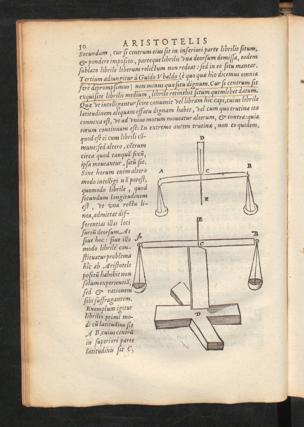 50 ARISTOTELIS
Secundum, cur si centrum eius sit in inferiori parte librilis situm,
& pondere imposito, pars quæ librilis una deorsum demissa, eodem
sublato librile liberum relictum non redeat: sed in eo situ maneat.
Tertium adiungitur à Guido Ubaldo (è quo quæ hic dicemus omnia
ferè depromsimus) non minus quæsitu dignum. Cur si centrum sit
exquisitè librilis medium, librile retinebit situm quemlibet datum.
Quæ ut intelligantur scire convenit vel libram hic capi, cuius librile
latitudinem aliquam effatu dignam habet, vel cum quo trutina ita
connexa est, ut ad unius motum moveatur alterum, & contra: quia
earum continuum est: In extremo autem trutina, non ex quidem,
quod est is cum librili cõ-
mune: sed altero, est trum
circa quod tanquã fixũ,
ipsa moveantur, situ sit.
Sine horum enim altero
modo intelligi nõ potest,
quomodo librile, quod
secundum longitudinem
est, ut una recta li-
nea, admittat dif-
ferentias illas loci
sursũ deorsum. At
sive hoc: sive illo
modo librile con-
stituatur problema
hîc ab Aristotele
positũ habebit non
solum experientiã,
sed & rationem
sibi suffragantem.
Exemplum igitur
librilis primi mo-
di cũ latitudini sit
A B, cuius centrũ
in superiori parte
latitudini sit C,
D
A C B
E
E
A C B
D